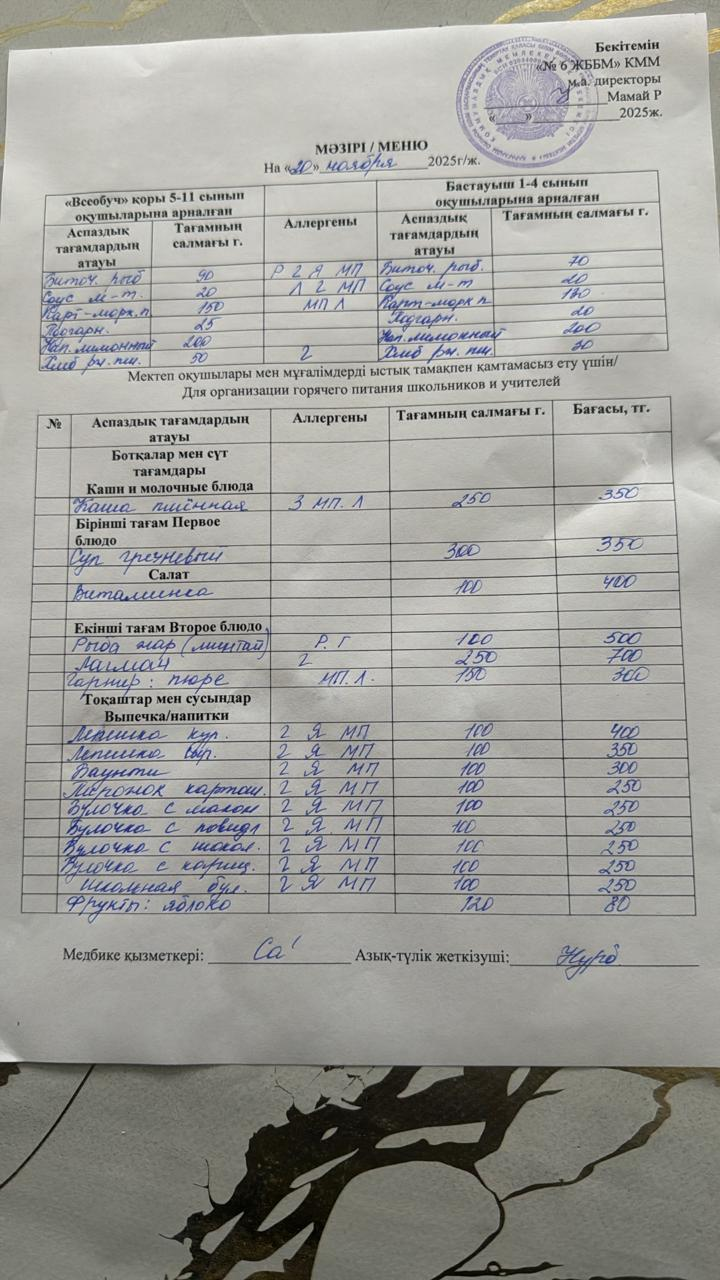 Бекітемін
«№ 6 ЖББМ» КММ
м.а. директоры
Мамай Р
«____»____________2025ж.
МӘЗІРІ / МЕНЮ
На «20» ноября 2025г/ж.
«Всеобуч» қоры 5-11 сынып оқушыларына арналған Бастауыш 1-4 сынып оқушыларына арналған
Аспаздық тағамдардың атауы Тағамның салмағы г. Аллергены Аспаздық тағамдардың атауы Тағамның салмағы г.
Биточ. рыб 90 Р Г Я МП Биточ. рыб. 70
Соус м-т. 20 Л Г МП Соус м-т 20
Карт-морк.п 150 МП Л Карт-морк п 130
Подгарн. 25 Подгарн. 20
Нап.лимонный 200 Нап.лимонный 200
Хлеб рж. пш. 50 Г Хлеб рж. пш. 30
Мектеп оқушылары мен мұғалімдерді ыстық тамақпен қамтамасыз ету үшін/
Для организации горячего питания школьников и учителей
№ Аспаздық тағамдардың атауы Аллергены Тағамның салмағы г. Бағасы, тг.
Ботқалар мен сүт тағамдары
Каши и молочные блюда
Каша пшённая З МП. Л 250 350
Бірінші тағам Первое блюдо
Суп гречневый 300 350
Салат
Витаминка 100 400
Екінші тағам Второе блюдо
Рыба жар (минтай) Р. Г 100 500
Лагман Г 250 700
Гарнир: пюре МП. Л. 150 300
Тоқаштар мен сусындар
Выпечка/напитки
кур. Г Я МП 100 400
Лепешка сыр. Г Я МП 100 350
Баунти Г Я МП 100 300
Пирожок картош. Г Я МП 100 250
Булочка с маком Г Я МП 100 250
Булочка с повидл Г Я МП 100 250
Булочка с шокол. Г Я МП 100 250
Булочка с кориц. Г Я МП 100 250
Школьная бул. Г Я МП 100 250
Фрукты: яблоко 120 80
Медбике қызметкері: Азық-түлік жеткізуші: